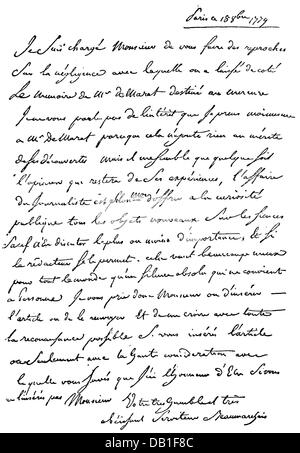 Paris ce 18 8bre 1779
Je suis chargé Monsieur de vous faire des reproches
sur la négligence avec laquelle on a laissé de coté
Le Memoire de Mr de Marat destiné au mercure
Je ne vous parle pas de l'intérêt que je prens moi meme
a Mr de Marat parceque cela n'ajoute rien au mérite
de ses découvertes mais il me semble que quelque soit
l'opinion qui restera de ses expériences, l'affaire
du Journaliste est d'offrir a la curiosité
publique tous les objets nouveaux sur les sciences
sauf a en discuter le plus ou moins d'importance, si
le rédacteur se le permet. cela vaut beaucoup mieux
pour tout le monde qu'un silence absolu qui ne convient
a personne Je vous prie donc Monsieur ou d'insérer
l'article ou de le renvoyer Et de me croire avec toute
la reconnaissance possible si vous insérés l'article
ou seulement avec la haute consideration avec
laquelle vous savés que j'ai l'honneur d'Etre si vous
n'insérés pas Monsieur Votre tres humble et tres
obéissant Serviteur Beaumarchais
alamy
Image ID: DB1F8C
www.alamy.com